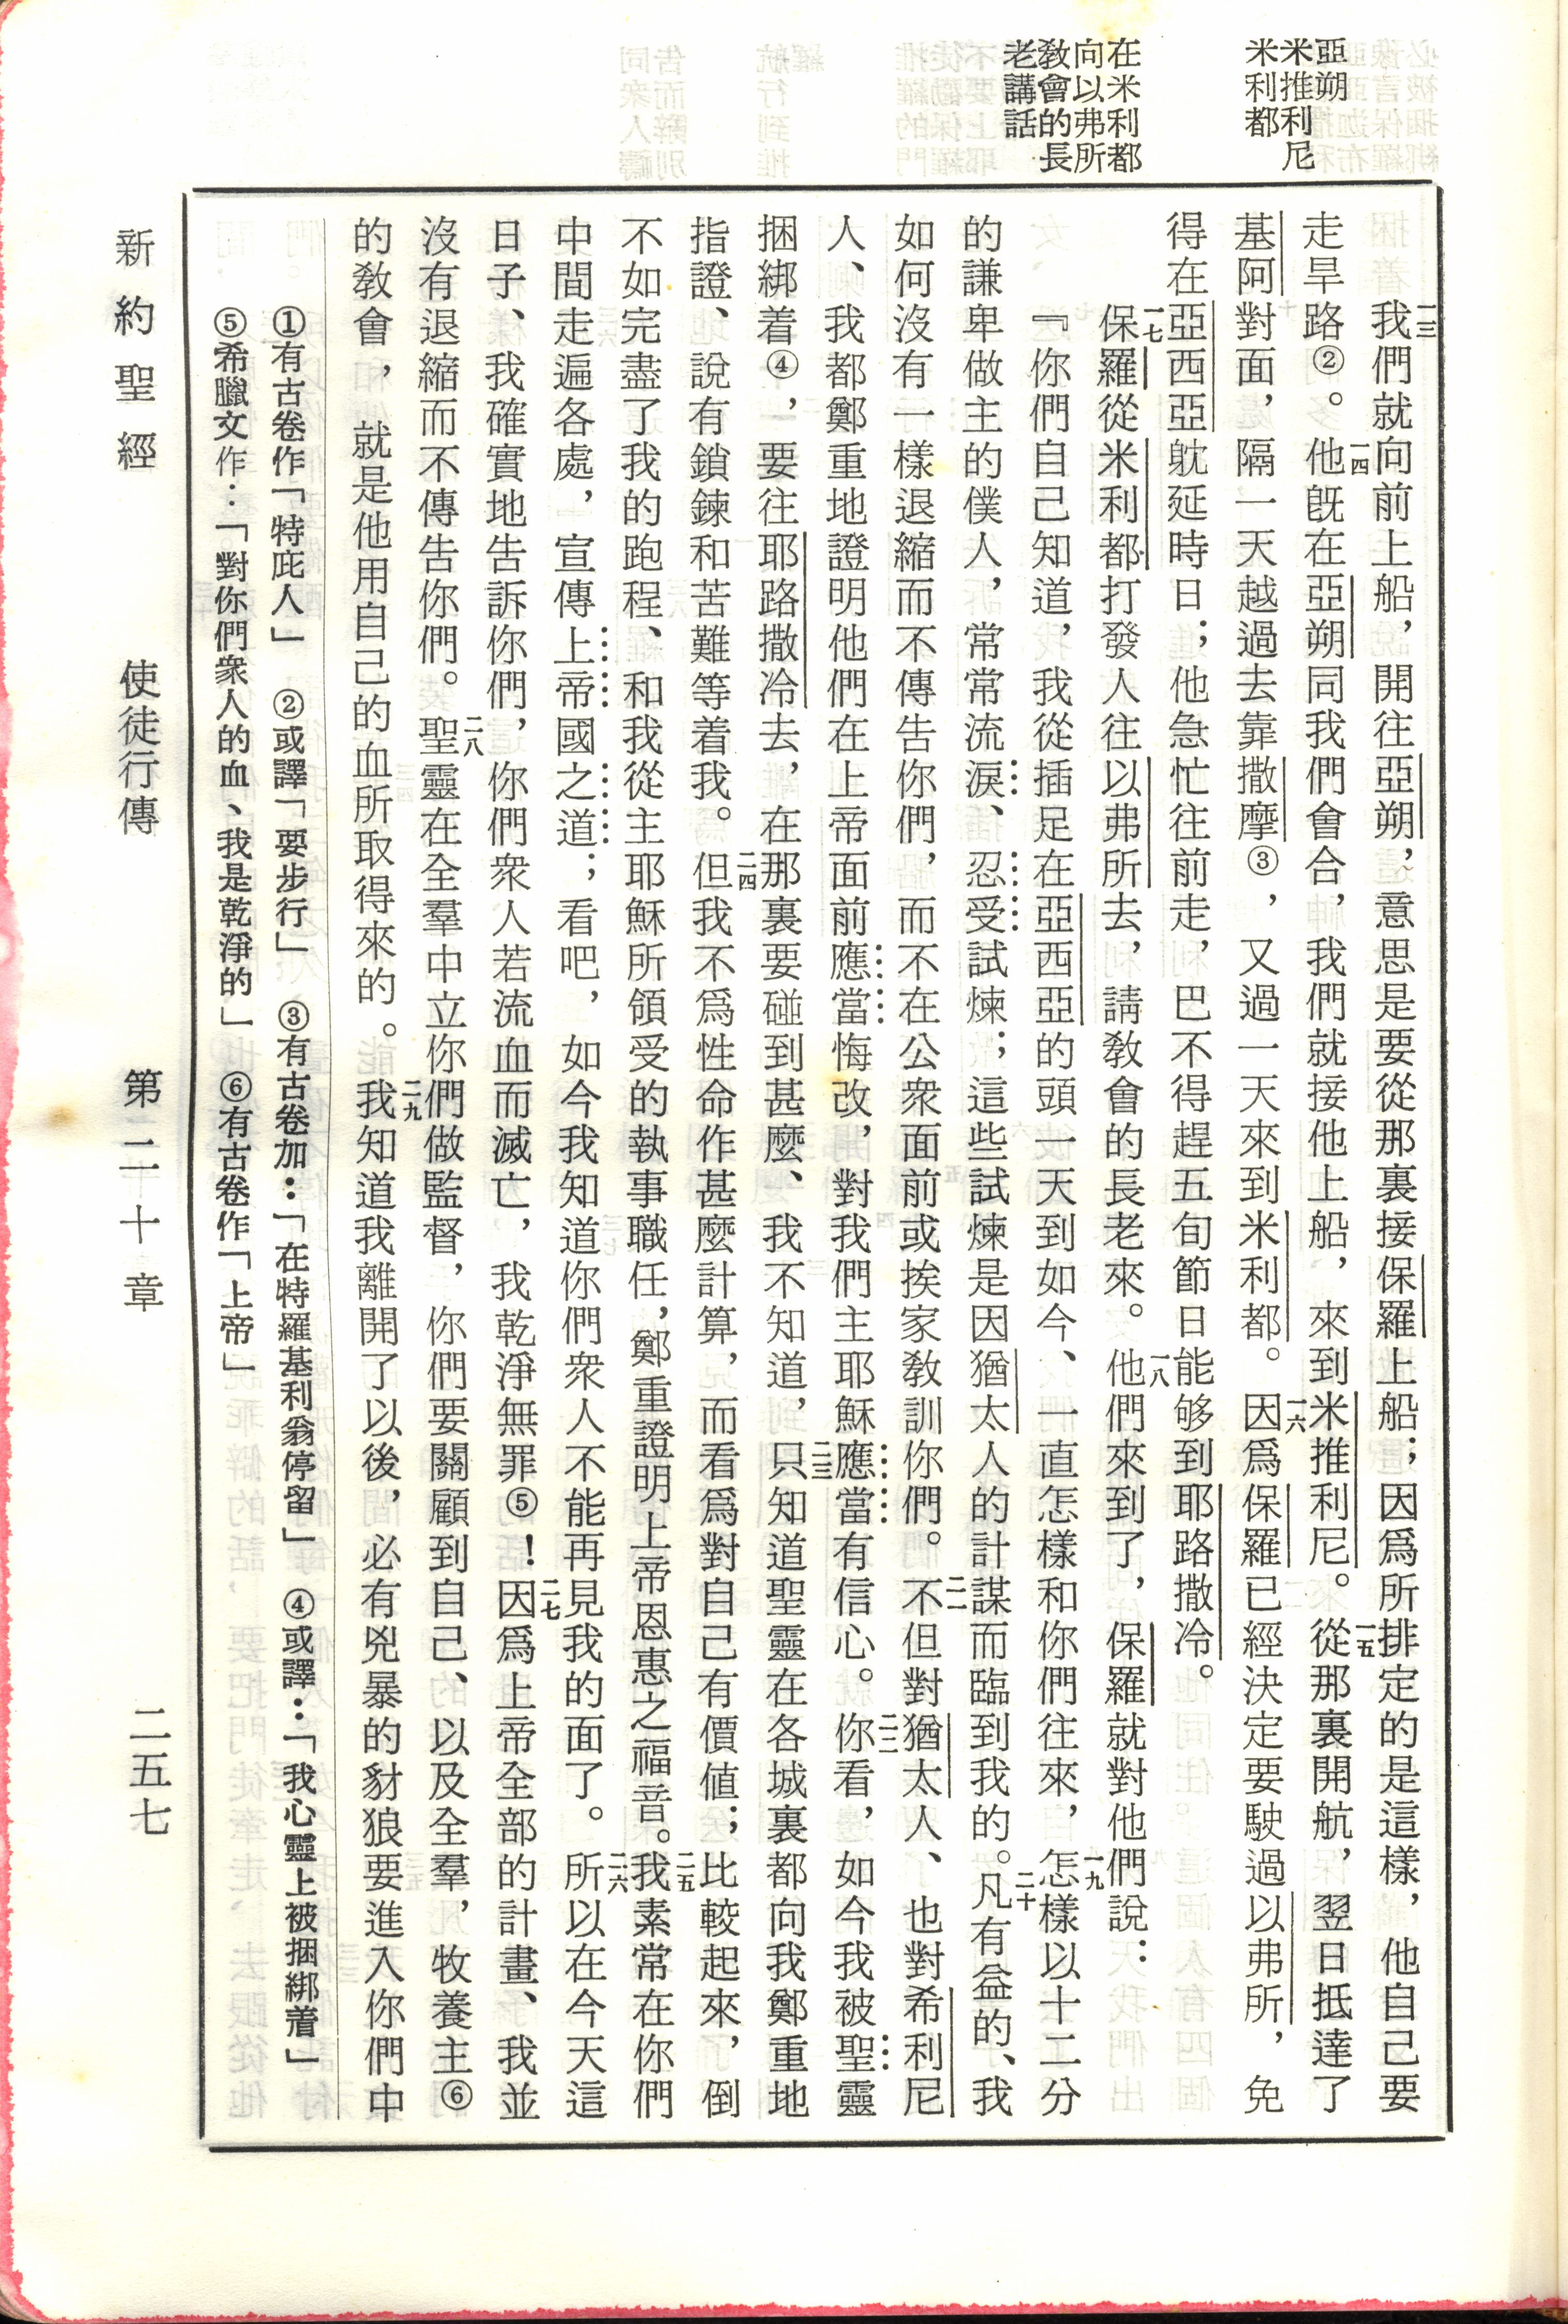 亞朔
米推利尼
米利都
在米利都
向以弗所
敎會的長
老講話
一三我們就向前上船，開往亞朔，意思是要從那裏接保羅上船；因爲所排定的是這樣，他自己要
走旱路②。一四他旣在亞朔同我們會合，我們就接他上船，來到米推利尼。一五從那裏開航，翌日抵達了
基阿對面，隔一天越過去靠撒摩③，又過一天來到米利都。一六因爲保羅已經決定要駛過以弗所，免
得在亞西亞躭延時日；他急忙往前走，巴不得趕五旬節日能够到耶路撒冷。
一七保羅從米利都打發人往以弗所去，請敎會的長老來。一八他們來到了，保羅就對他們說：
『你們自己知道，我從插足在亞西亞的頭一天到如今、一直怎樣和你們往來，一九怎樣以十二分
的謙卑做主的僕人，常常流淚、忍受試煉；這些試煉是因猶太人的計謀而臨到我的。二十凡有益的、我
如何沒有一樣退縮而不傳告你們，而不在公衆面前或挨家敎訓你們。二一不但對猶太人、也對希利尼
人、我都鄭重地證明他們在上帝面前應當悔改，對我們主耶穌應當有信心。二二你看，如今我被聖靈
捆綁着④，要往耶路撒冷去，在那裏要碰到甚麼、我不知道，二三只知道聖靈在各城裏都向我鄭重地
指證、說有鎖鍊和苦難等着我。二四但我不爲性命作甚麼計算，而看爲對自己有價值；二五比較起來，倒
不如完盡了我的跑程、和我從主耶穌所領受的執事職任，鄭重證明上帝恩惠之福音。我素常在你們
中間走遍各處，宣傳上帝國之道；看吧，如今我知道你們衆人不能再見我的面了。二六所以在今天這
日子、我確實地告訴你們，你們衆人若流血而滅亡，我乾淨無罪⑤！二七因爲上帝全部的計畫、我並
沒有退縮而不傳告你們。二八聖靈在全羣中立你們做監督，你們要關顧到自己、以及全羣，牧養主⑥
的敎會，就是他用自己的血所取得來的。二九我知道我離開了以後，必有兇暴的豺狼要進入你們中
①有古卷作「特庇人」　②或譯「要步行」　③有古卷加：「在特羅基利翁停留」　④或譯：「我心靈上被捆綁着」
⑤希臘文作：「對你們衆人的血、我是乾淨的」　⑥有古卷作「上帝」
新約聖經　使徒行傳　第二十章　二五七